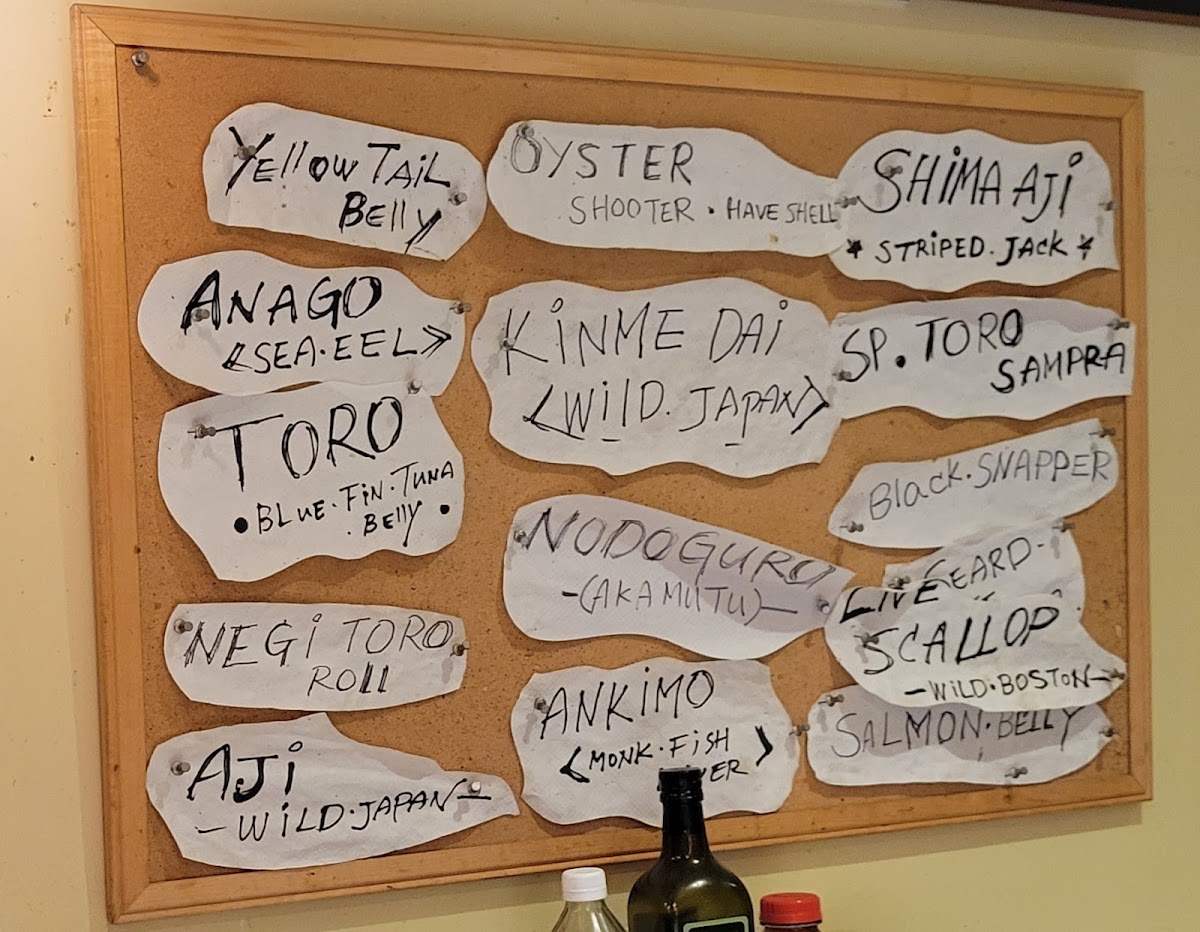 YELLOW TAIL
BELLY
ANAGO
<<SEA·EEL>>
TORO
•BLUE·FIN·TUNA
·BELLY •
NEGI TORO
ROLL
AJI
—WILD·JAPAN—
OYSTER
SHOOTER · HAVE SHELL
KINME DAI
<WILD. JAPAN>
NODOGURO
—(AKAMUTU)—
ANKIMO
<MONK·FISH >
SHIMA AJI
* STRIPED. JACK *
SP. TORO
SAMPRA
BLACK·SNAPPER
LIVE
SCALLOP
—WILD·BOSTON—
SALMON·BELLY